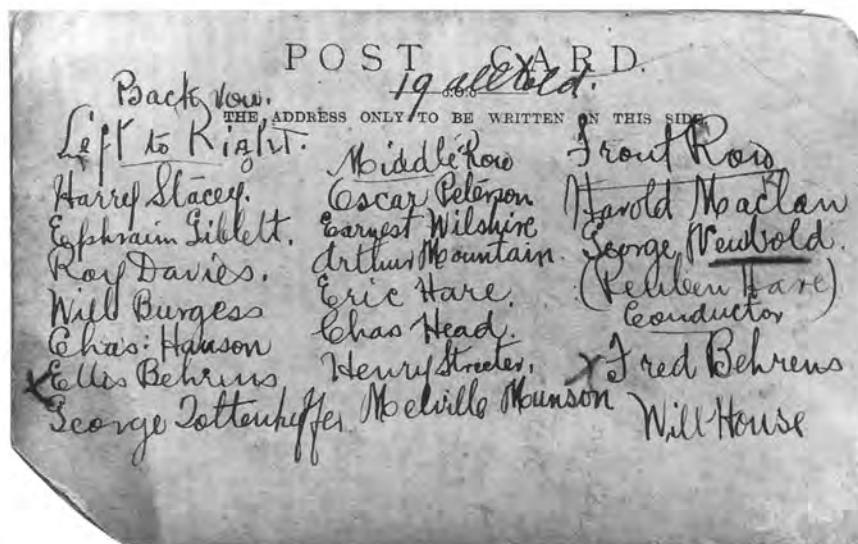 POST CARD.
19 all told.
THE ADDRESS ONLY TO BE WRITTEN ON THIS SIDE
Back row.
Left to Right.
Harry Stacey.
Ephraim Giblett.
Roy Davies.
Will Burgess
Chas: Hanson
x Ellis Behrens
George Tottenhoffer
Middle Row
Oscar Peterson
Earnest Wilshire
Arthur Mountain.
Eric Hare.
Chas Head.
Henry Streeter.
Melville Munson
Front Row
Harold Maclan
George Newbold.
(Reuben Hare)
Conductor
x Fred Behrens
Will House